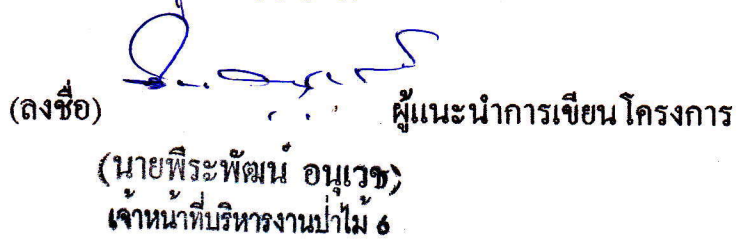 (ลงชื่อ) ผู้แนะนำการเขียนโครงการ
(นายพีระพัฒน์ อนุเวช)
เจ้าหน้าที่บริหารงานป่าไม้ 6